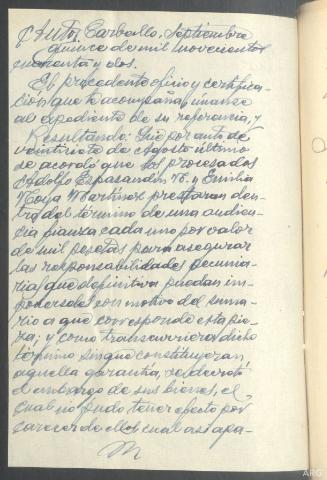 Auto, Carballo, Septiembre
quince de mil novecientos
cincuenta y dos.
El precedente oficio y certifica-
ción que se acompaña, únanse
al expediente de su referencia, y
Resultando: Que por auto de
veintisiete de Agosto último
se acordó que los procesados
Adolfo Esparandín y Emilia
Moya Martínez prestaran den-
tro del término de una audien-
cia fianza cada uno por valor
de mil pesetas para asegurar
las responsabilidades pecunia-
rias que definitiva puedan im-
ponerseles con motivo del suma-
rio a que corresponde esta pie-
za; y como transcurriera dicho
término sin que constituyeran
aquella garantía, se decretó
el embargo de sus bienes, el
cual no pudo tener efecto por
carecer de ellos cual así apa-
ARG